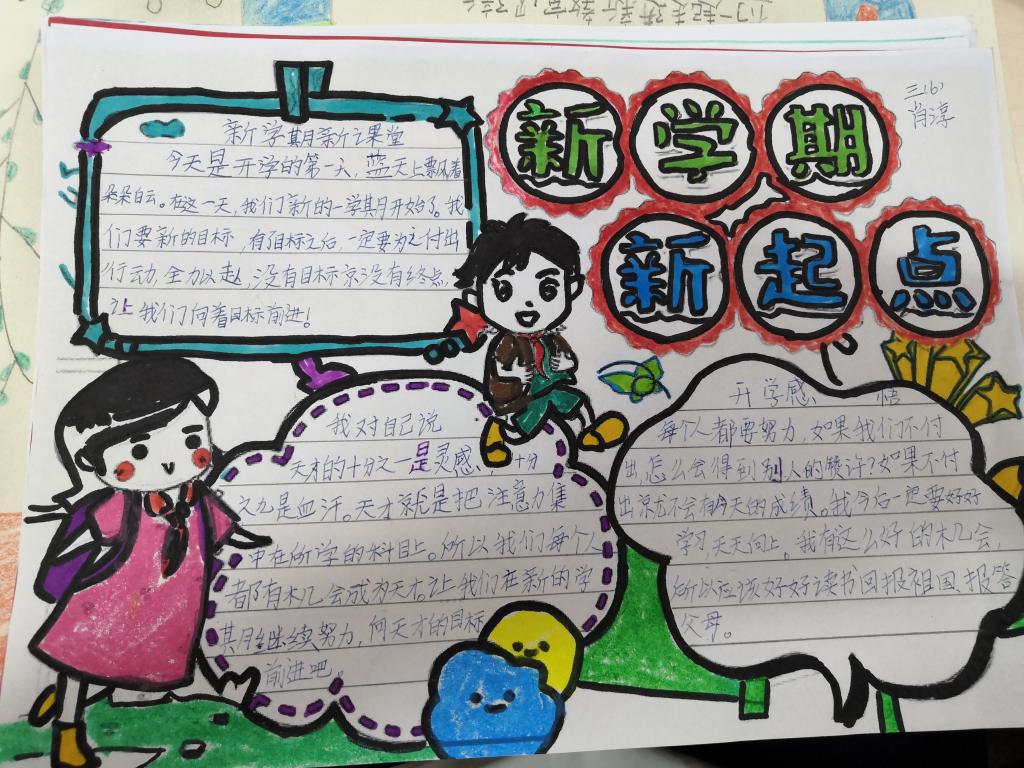 新学期
新起点
三(6)
肖淳
新学期新课堂
今天是开学的第一天，蓝天上飘着
朵朵白云。在这一天，我们新的一学期开始了。我
们要新的目标，有了目标之后，一定要为之付出
行动，全力以赴，没有目标就没有终点，
让我们向着目标前进！
我对自己说
天才的十分之一是灵感、十分
之九是血汗。天才就是把注意力集
中在所学的科目上。所以我们每个人
都有机会成为天才，让我们在新的学
期继续努力，向天才的目标
前进吧。
开学感悟
每个人都要努力，如果我们不付
出，怎么会得到别人的赞许？如果不付
出就不会有今天的成绩。我今后一定要好好
学习，天天向上，我有这么好的机会，
所以应该好好读书回报祖国、报答
父母。